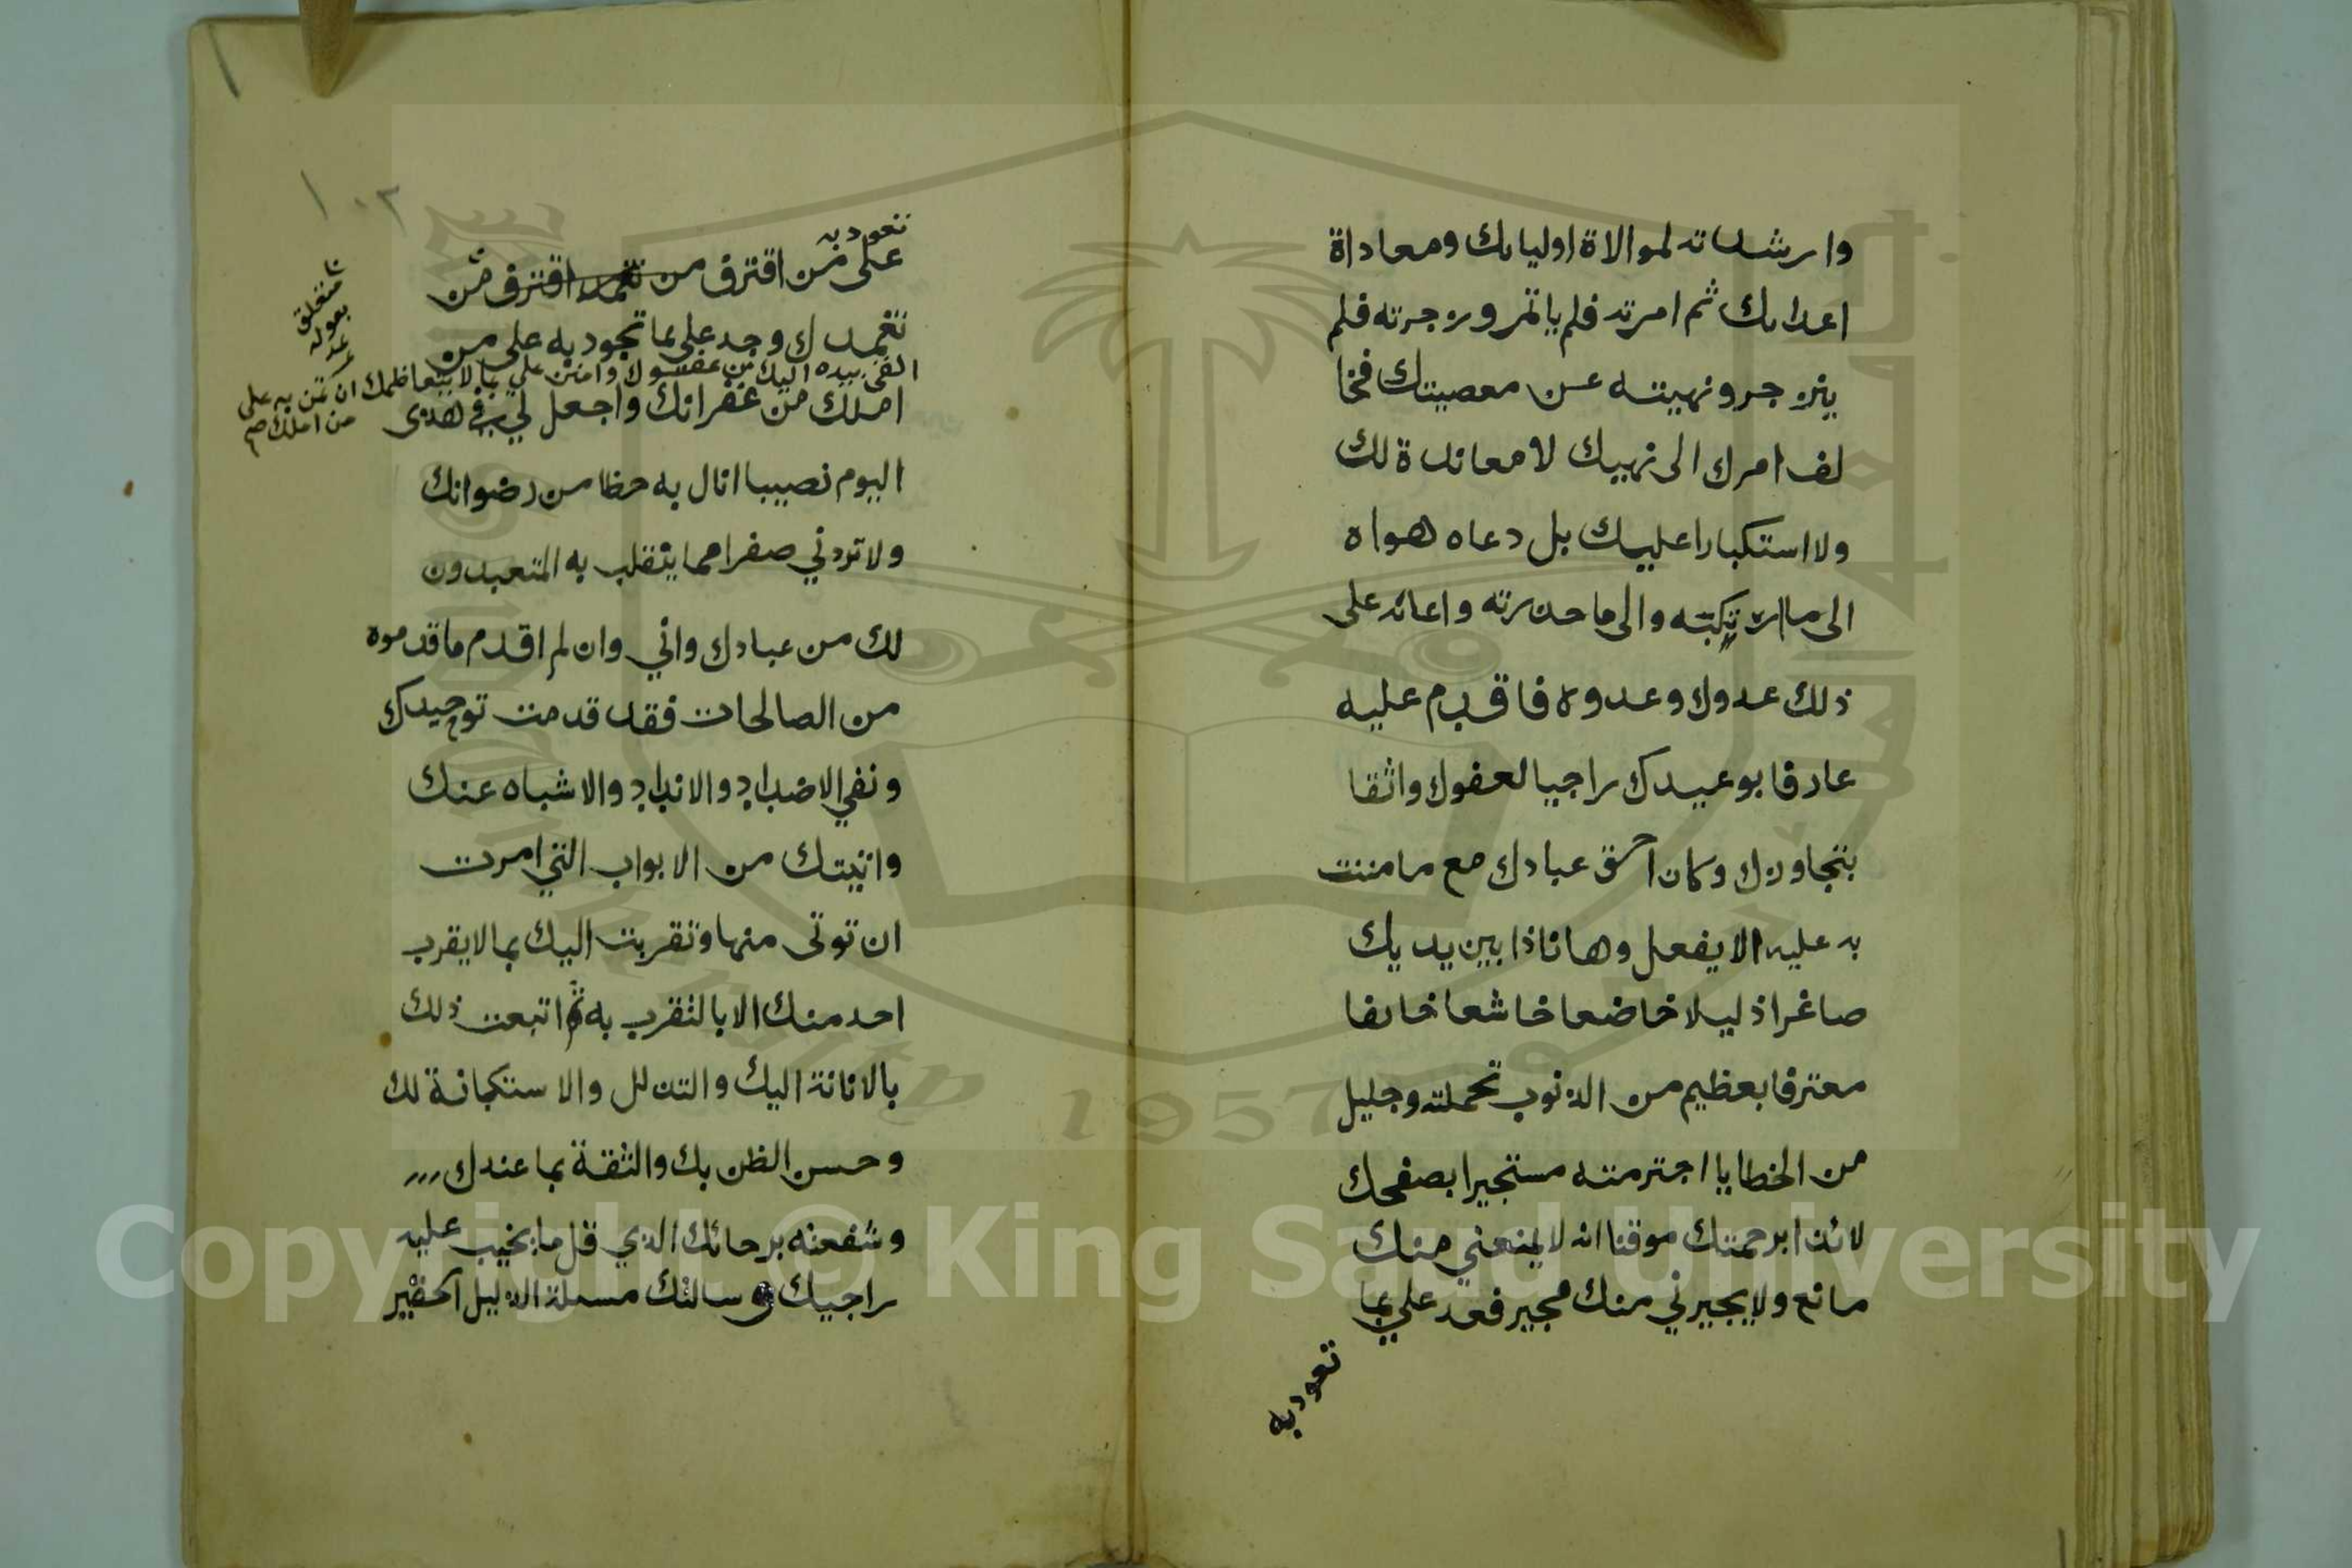 وارشدته لموالاة اوليايك ومعاداة
اعدايك ثم امرته فلم ياتمر وزجرته فلم
ينزجر ونهيته عن معصيتك فخا
لف امرك الى نهيك لا معاندة لك
ولا استكبارا عليك بل دعاه هواه
الى ما ارتكبته والى ما حذرته واعانه على
ذلك عدوك وعدوه فاقدم عليه
عارفا بوعيدك راجيا لعفوك واثقا
بتجاوزك وكان احق عبادك مع ما مننت
به عليه الا يفعل وها اناذا بين يديك
صاغرا ذليلا خاضعا خاشعا خايفا
معترفا بعظيم من الذنوب تحملته وجليل
من الخطايا اجترمته مستجيرا بصفحك
لائذا برحمتك موقنا انه لا يمنعني منك
مانع ولا يجيرني منك مجير فعد علي بما
تعود به
١٠٢
تعود به
على من اقترف من تغمد اقترف من
تغمدك وجد علي بما تجود به على من
القى بيده اليك من عفوك وامنن علي بما لا يتعاظمك ان تمن به على
من املك صح
متعلق
بقوله
عد
املك من غفرانك واجعل لي في هذا
اليوم نصيبا انال به حظا من رضوانك
ولا تردني صفرا مما ينقلب به المتعبدون
لك من عبادك واني وان لم اقدم ما قدموه
من الصالحات فقد قدمت توحيدك
ونفي الاضداد والانداد والاشباه عنك
واتيتك من الابواب التي امرت
ان توتى منها وتقربت اليك بما لا يقرب
احد منك الا بالتقرب به ثم اتبعت ذلك
بالانابة اليك والتذلل والاستكانة لك
وحسن الظن بك والثقة بما عندك
وشفعته برجائك الذي قل ما يخيب عليه
راجيك وسالتك مسئلة الذليل الحقير
Copyright © King Saud University
1957